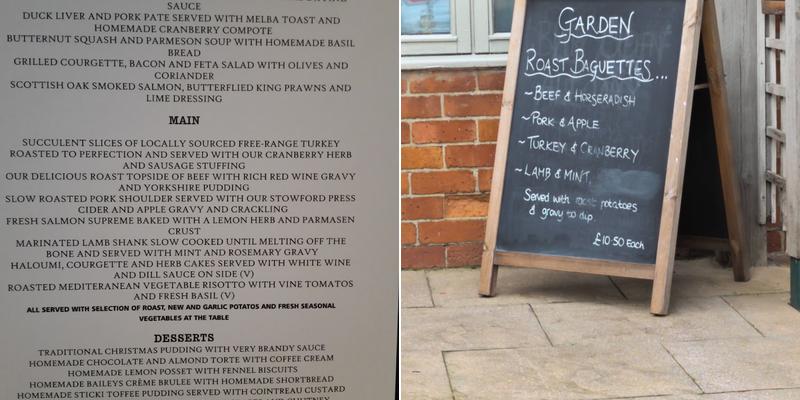 SAUCE
DUCK LIVER AND PORK PATE SERVED WITH MELBA TOAST AND
HOMEMADE CRANBERRY COMPOTE
BUTTERNUT SQUASH AND PARMESON SOUP WITH HOMEMADE BASIL
BREAD
GRILLED COURGETTE, BACON AND FETA SALAD WITH OLIVES AND
CORIANDER
SCOTTISH OAK SMOKED SALMON, BUTTERFLIED KING PRAWNS AND
LIME DRESSING
MAIN
SUCCULENT SLICES OF LOCALLY SOURCED FREE-RANGE TURKEY
ROASTED TO PERFECTION AND SERVED WITH OUR CRANBERRY HERB
AND SAUSAGE STUFFING
OUR DELICIOUS ROAST TOPSIDE OF BEEF WITH RICH RED WINE GRAVY
AND YORKSHIRE PUDDING
SLOW ROASTED PORK SHOULDER SERVED WITH OUR STOWFORD PRESS
CIDER AND APPLE GRAVY AND CRACKLING
FRESH SALMON SUPREME BAKED WITH A LEMON HERB AND PARMASEN
CRUST
MARINATED LAMB SHANK SLOW COOKED UNTIL MELTING OFF THE
BONE AND SERVED WITH MINT AND ROSEMARY GRAVY
HALOUMI, COURGETTE AND HERB CAKES SERVED WITH WHITE WINE
AND DILL SAUCE ON SIDE (V)
ROASTED MEDITERANEAN VEGETABLE RISOTTO WITH VINE TOMATOS
AND FRESH BASIL (V)
ALL SERVED WITH SELECTION OF ROAST, NEW AND GARLIC POTATOS AND FRESH SEASONAL
VEGETABLES AT THE TABLE
DESSERTS
TRADITIONAL CHRISTMAS PUDDING WITH VERY BRANDY SAUCE
HOMEMADE CHOCOLATE AND ALMOND TORTE WITH COFFEE CREAM
HOMEMADE LEMON POSSET WITH FENNEL BISCUITS
HOMEMADE BAILEYS CRÈME BRULEE WITH HOMEMADE SHORTBREAD
HOMEMADE STICKI TOFFEE PUDDING SERVED WITH COINTREAU CUSTARD
GARDEN
ROAST BAGUETTES...
~BEEF & HORSERADISH
~PORK & APPLE
~TURKEY & CRANBERRY
~LAMB & MINT
Served with roast potatoes
& gravy to dip
£10.50 Each